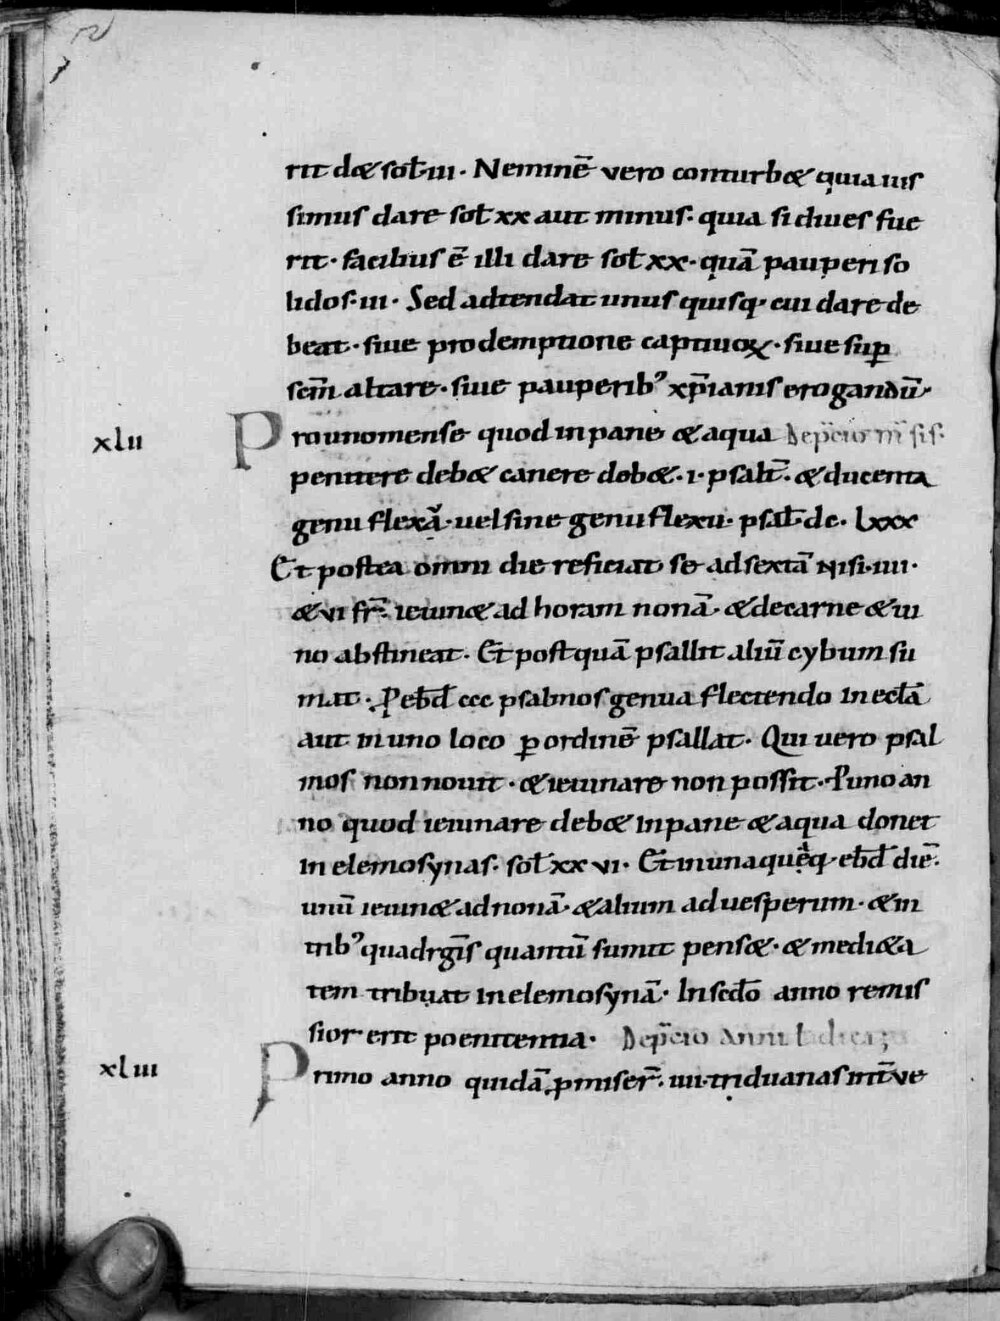 rit d&sol̄ iii· Neminē vero conturb& quia ius
simus dare sol̄ xx aut minus· quia si diues fue
rit· facilius ē illi dare sol̄ xx· quā pauperi so
lidos· iii· Sed adtendat unus quisq· cui dare de
beat· siue prodemptione captiuoꝝ· siue suꝑ
scm̄ altare· siue pauperib' xp̄ianis erogandū·
xlii Pro uno mense quod in pane & aqua
penitere deb& canere deb&· i· psalt̄· & ducenta
genu flexā· uel sine genu flexu· psal̄· dc· lxxx
Et postea omni die reficiat se ad sextā nisi· iiii·
& vi fr̄· ieiun& ad horam nonā· & de carne & ui
no abstineat· Et postquā psallit aliū cybum su
mat· P ebd̄ ccc psalmos genua flectendo in ecl̄ā
aut in uno loco ꝑ ordinē psallat· Qui vero psal
mos non nouit· & ieiunare non possit· P uno an
no quod ieiunare deb& in pane & aqua donet
in elemosynas· sol̄ xx vi· Et in unaquęq· ebd̄ diē·
unū ieiun& ad nonā· & alium ad uesperum· & in
trib' quadrḡis quantū sumit pens&· & medi&a
tem tribuat in elemosynā· In scd̄o anno remis
sior erit poenitentia· Dep̄cio anni
xliii Primo anno quidā ꝑmiser̄· iiii· triduanas int̄ ve